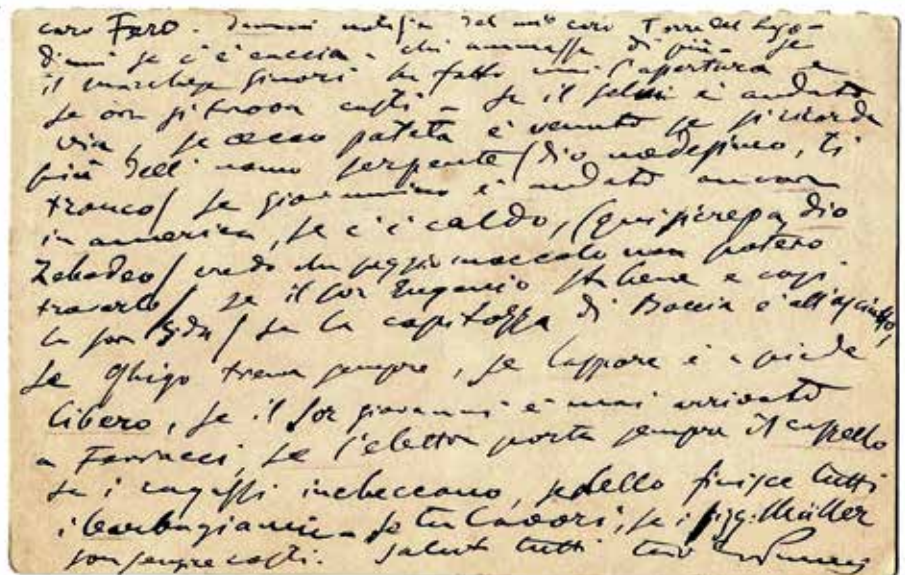 caro Fero. Dammi notizia del mio caro Torre del Lago -
dimmi se c'è caccia - chi ammazza di più - se
il marchese ginori ha fatto mai l'apertura e
se ora si trova costì - se il è andato
via, se cecco patata è venuto se si ricorda
più dell' uomo serpente (dio , ti
tronco) se giovannino è andato ancora
in america, se c'è caldo, (qui si crepa, dio
Zebedeo) credo che peggio non potevo
trovarlo) se il sor Eugenio sta bene e così
la sora / se la capitozza di Boccia è all'asciutto,
se Ghigo trema sempre, se lappore è a piede
libero, se il sor giovanni è mai arrivato
a Ferrucci, se l'elettor porta sempre il cappello
se i ragazzi imbeccano, se dello finisce tutti
i barbagianni - se tu lavori, se i sigg. Müller
son sempre costì. Saluta tutti tuo